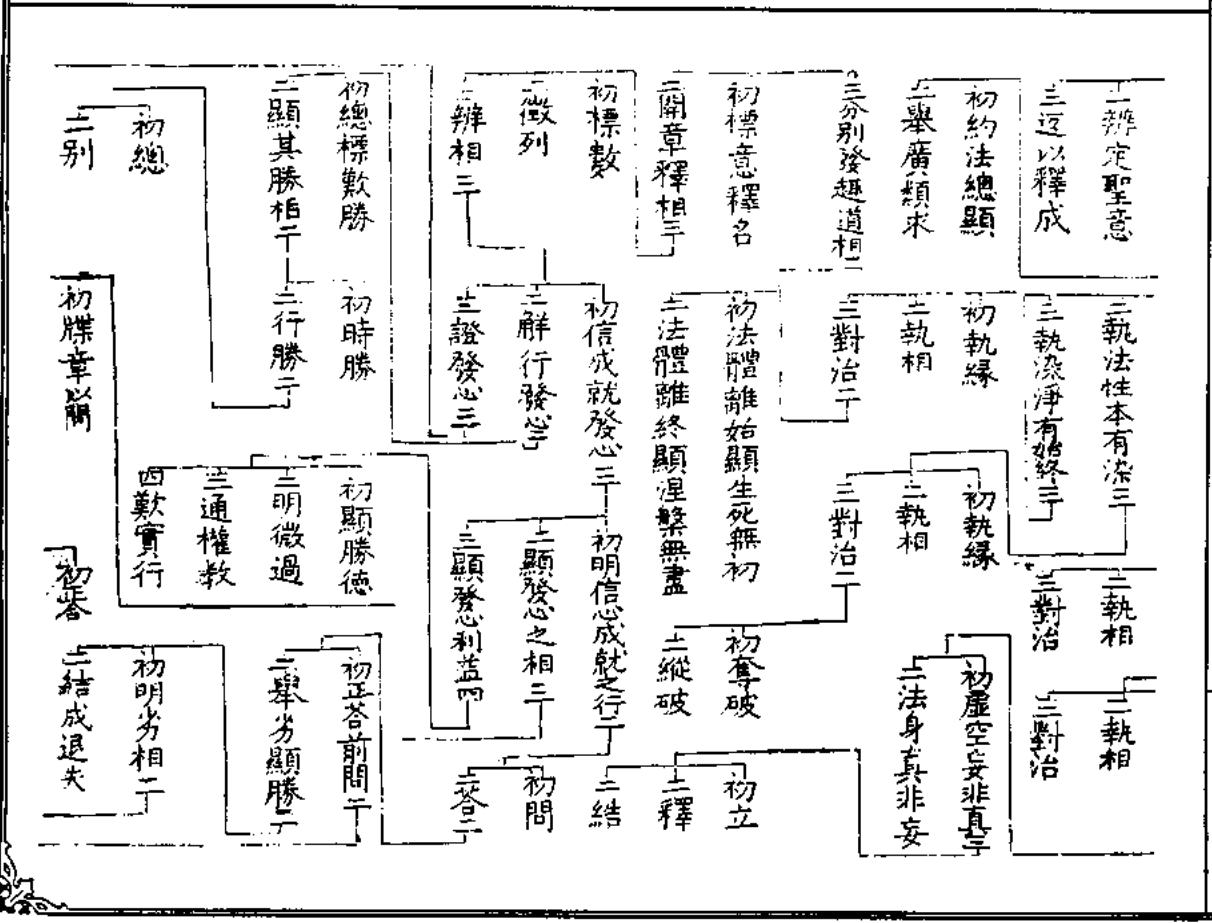 二辨定聖意
三逆以釋成
初約法總顯
二舉廣類求
三分別發趣道相二
初標意釋名
二開章釋相三
初標數
二徵列
三辨相三
初總標歎勝
二顯其勝相二
初總
二別
二執法性本有染三
三執染淨有始終三
初執緣
二執相
三對治二
初法體離始顯生死無初
二法體離終顯涅槃無盡
初信成就發心三
二解行發心二
三證發心三
初時勝
二行勝二
初牒章以問
二執相
三對治
初執緣
二執相
三對治二
初奪破
二縱破
初明信心成就之行二
二顯發心之相三
三顯發心利益四
初顯勝德
二明微過
三通權教
四歎實行
初答
二執相
三對治
初虛空妄非真三
二法身真非妄
初立
二釋
三結
初問
二答二
初正答前問二
二舉劣顯勝二
初明劣相二
二結成退失